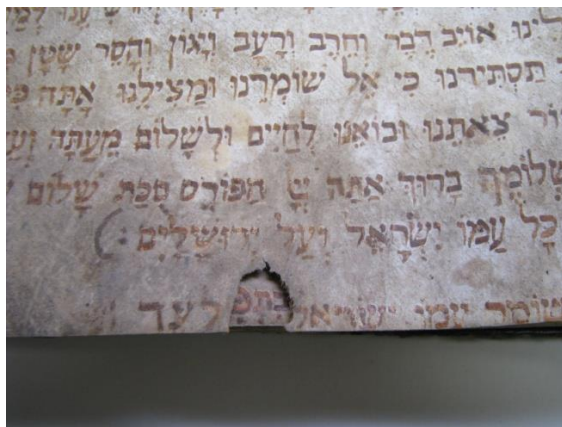 אוֹיֵב דֶבֶר וְחֶרֶב וְרָעָב וְיָגוֹן וְהָסֵר שָטָן
תַסְתִירֵנוּ כִי אֵל שוֹמְרֵנוּ וּמַצִילֵנוּ אָתָה
צֵאתֵנוּ וּבוֹאֵנוּ לְחַיִים וּלְשָלוֹם מֵעַתָה
שְלוֹמֶךָ בָרוּךְ אַתָה הַפוֹרֵס סֻכַת שָלוֹם
כָל עַמוֹ יִשְרָאֵל וְעַל יְרוּשָלָיִם:
שומר עמו ישראל לעד